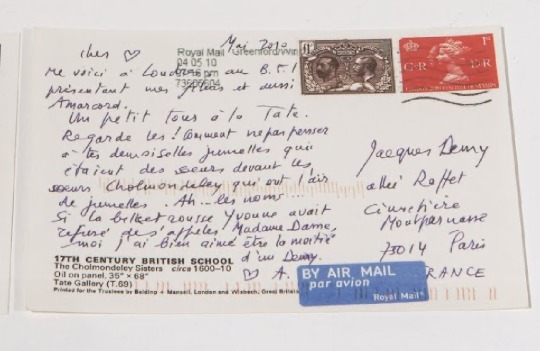 Mai 2010
cher ♡
Royal Mail Greenford/Win
04 05 10
pm
Me voici à Londres au B.F.I
présentant mes films et aussi
Amarcord.
Un petit tour à la Tate.
Regarde les! Comment ne pas penser
à tes demoiselles jumelles qui
étaient des soeurs devant les
soeurs Cholmondeley qui ont l'air
de jumelles. Ah... les noms...
Si la belle rousse Yvonne avait
refusé de s'appeler Madame Dame,
moi j'ai bien aimé être la moitié
d'un Demy.
♡ A.
1st
Jacques Demy
allée Raffet
Cimetière
Montparnasse
75014 Paris
FRANCE
BY AIR MAIL
par avion
Royal Mail
17TH CENTURY BRITISH SCHOOL
The Cholmondeley Sisters circa 1600–10
Oil on panel, 35" × 68"
Tate Gallery (T.69)
Printed for the Trustees by Balding + Mansell, London and Wisbech, Great Britain